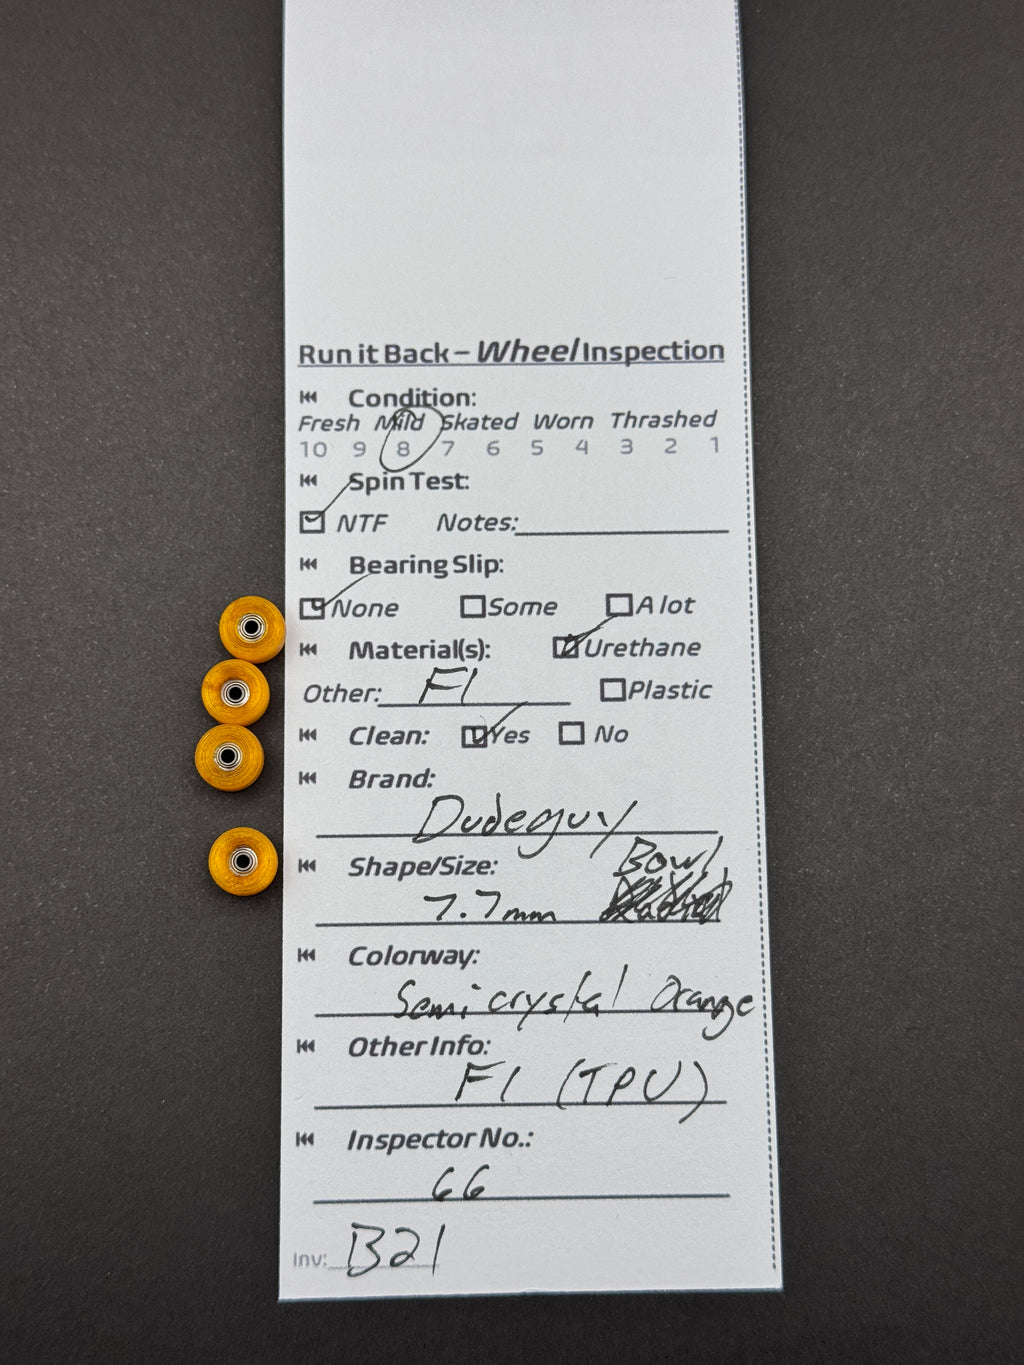 Run it Back – Wheel Inspection
Condition:
Fresh Mild Skated Worn Thrashed
10 9 8 7 6 5 4 3 2 1
Spin Test:
NTF Notes:
Bearing Slip:
None Some A lot
Material(s): Urethane
Other: F1 Plastic
Clean: Yes No
Brand:
Dudeguy
Shape/Size: Bowl
7.7mm
Colorway:
Semicrystal Orange
Other Info:
F1 (TPU)
Inspector No.:
66
Inv: B21